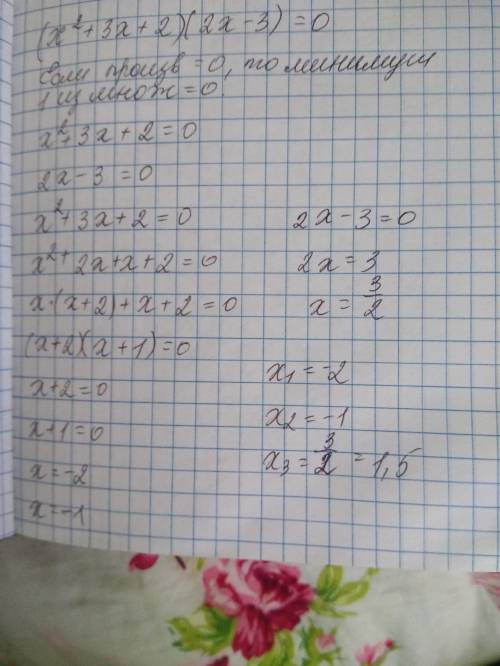 (x²+3x+2)(2x-3)=0
Если произв =0, то минимум
1 из множ =0
x²+3x+2=0
2x-3=0
x²+3x+2=0
x²+2x+x+2=0
x·(x+2)+x+2=0
(x+2)(x+1)=0
x+2=0
x+1=0
x=-2
x=-1
2x-3=0
2x=3
x=3/2
x₁=-2
x₂=-1
x₃=3/2=1,5